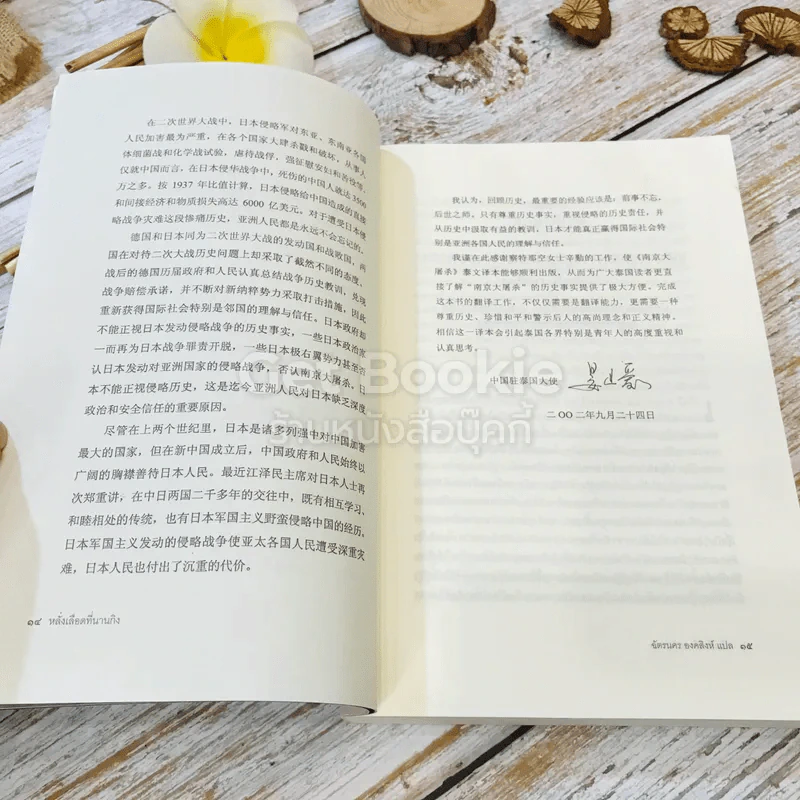 在二次世界大战中，日本侵略军对东亚、东南亚各国
人民加害最为严重，在各个国家大肆杀戮和破坏，从事人
体细菌战和化学战试验，虐待战俘，强征慰安妇和劳役等。
仅就中国而言，在日本侵华战争中，死伤的中国人就达 3500
万之多。按 1937 年比值计算，日本侵略给中国造成的直接
和间接经济和物质损失高达 6000 亿美元。对于遭受日本侵
略战争灾难这段惨痛历史，亚洲人民都是永远不会忘记的。
德国和日本同为二次世界大战的发动国和战败国，两
国在对待二次大战历史问题上却采取了截然不同的态度。
战后的德国历届政府和人民认真总结战争历史教训，兑现
战争赔偿承诺，并一直对新纳粹势力采取打击措施，因此
重新获得国际社会特别是邻国的理解与信任。日本政府却
一不能正视日本发动侵略战争的历史事实，一些日本政治家
一而再为日本战争罪责开脱，一些日本极右翼势力甚至否
认日本发动对亚洲国家的侵略战争，否认南京大屠杀。日
本不能正视侵略历史，这是迄今亚洲人民对日本缺乏深度
政治和安全信任的重要原因。
尽管在上两个世纪里，日本是诸多列强中对中国加害
最大的国家，但在新中国成立后，中国政府和人民始终以
广阔的胸襟善待日本人民。最近江泽民主席对日本人士再
次郑重讲，在中日两国二千多年的交往中，既有相互学习、
和睦相处的传统，也有日本军国主义野蛮侵略中国的经历。
日本军国主义发动的侵略战争使亚太各国人民遭受深重灾
难，日本人民也付出了沉重的代价。
๑๔ หลั่งเลือดที่นานกิง
我认为，回顾历史，最重要的经验应该是：前事不忘，
后世之师。只有尊重历史事实，重视侵略的历史责任，并
从历史中汲取有益的教训，日本才能真正赢得国际社会特
别是亚洲各国人民的理解与信任。
我谨在此感谢察特那空女士辛勤的工作，使《南京大
屠杀》泰文译本能够顺利出版，从而为广大泰国读者更直
接了解“南京大屠杀”的历史事实提供了极大方便。完成
这本书的翻译工作，不仅仅需要是翻译能力，更需要一种
尊重历史、珍惜和平和警示后人的高尚理念和正义精神。
相信这一译本会引起泰国各界特别是青年人的高度重视和
认真思考。
中国驻泰国大使
二〇〇二年九月二十四日
ฉัตรนคร องคสิงห์ แปล ๑๕
Get Bookie
ร้านหนังสือบุ๊คกี้